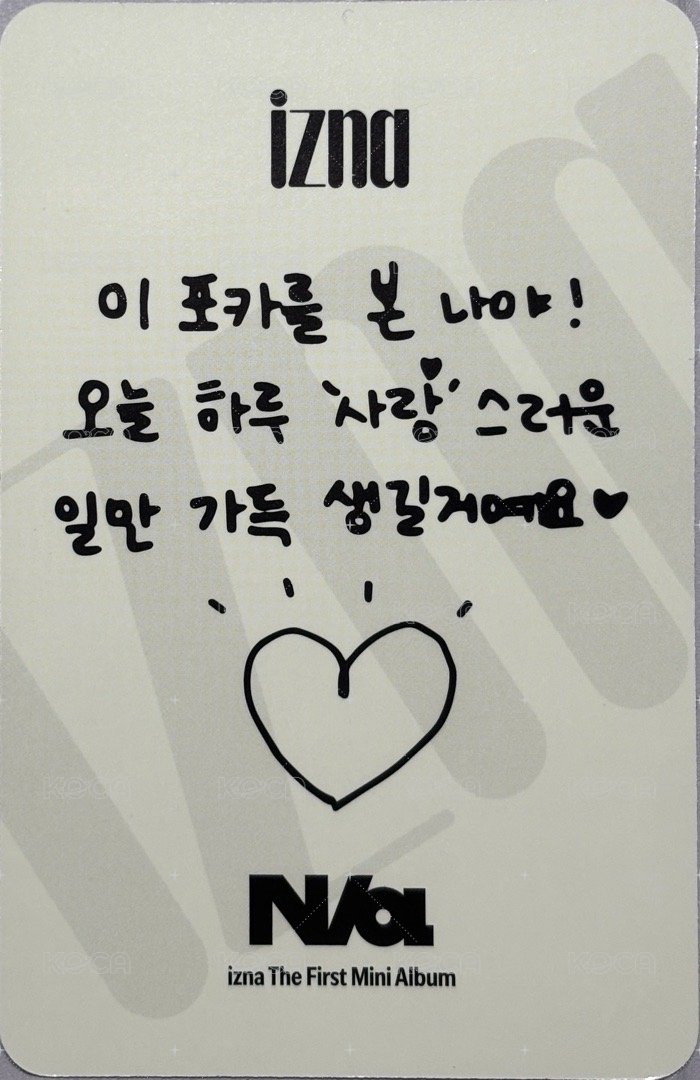 izna
이 포카를 본 나야!
오늘 하루 '사랑'스러운
일만 가득 생길거예요♥
N/a
izna The First Mini Album